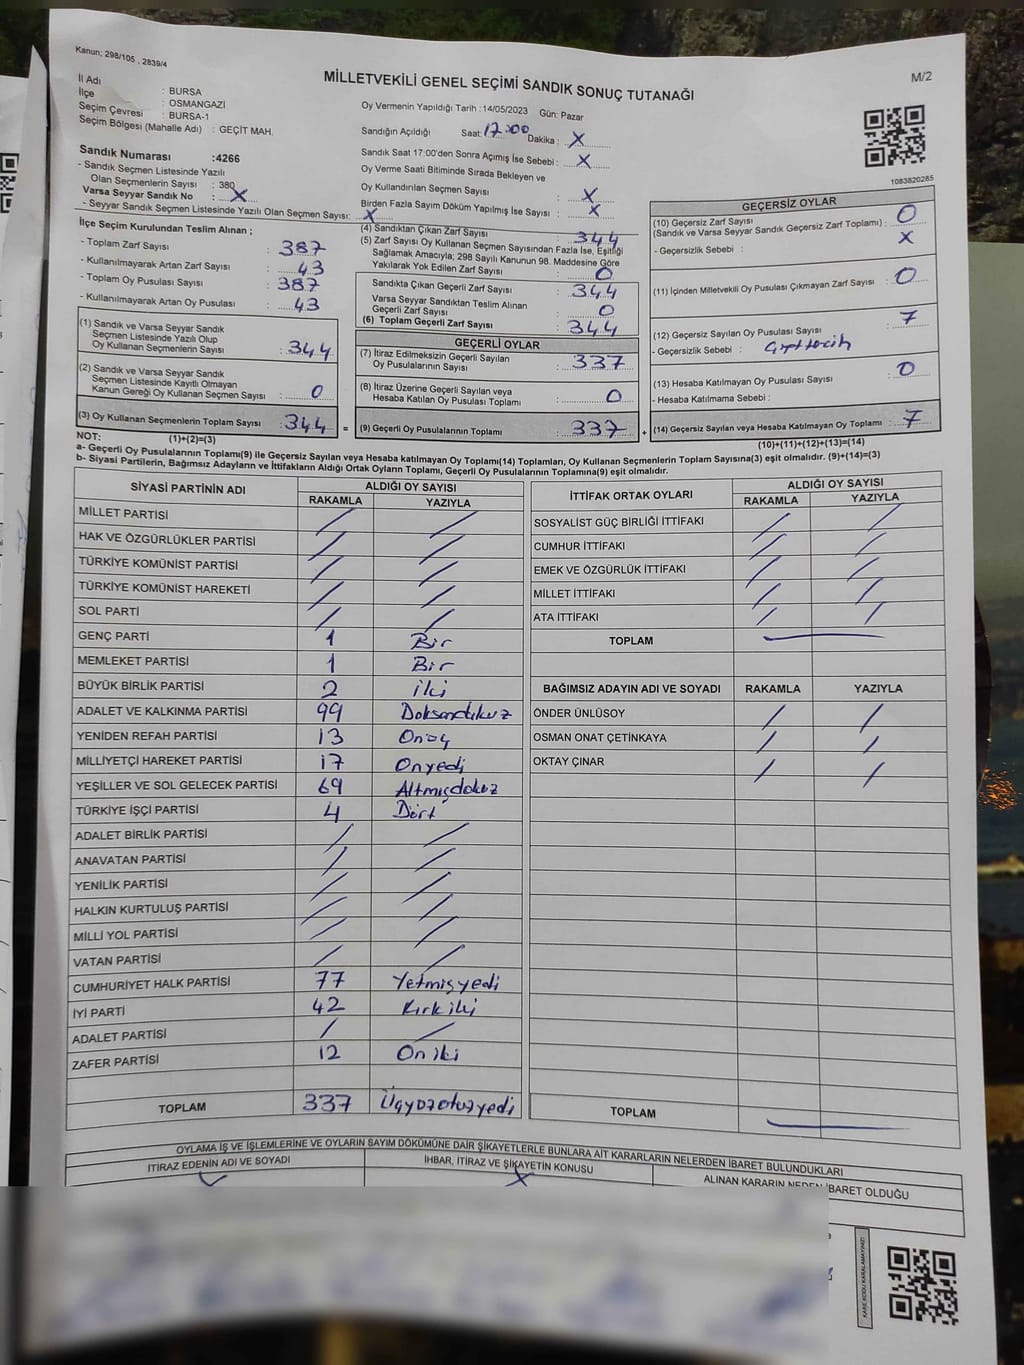 Kanun; 298/105 , 2839/4
M/2
MİLLETVEKİLİ GENEL SEÇİMİ SANDIK SONUÇ TUTANAĞI
İl Adı : BURSA
İlçe : OSMANGAZİ
Seçim Çevresi : BURSA-1
Seçim Bölgesi (Mahalle Adı) : GEÇİT MAH.
Oy Vermenin Yapıldığı Tarih :14/05/2023 Gün: Pazar
Sandığın Açıldığı Saat 17:00 Dakika : X
Sandık Saat 17:00'den Sonra Açımış İse Sebebi : X
Oy Verme Saati Bitiminde Sırada Bekleyen ve
Oy Kullandırılan Seçmen Sayısı : X
Birden Fazla Sayım Döküm Yapılmış İse Sayısı : X
1083820285
Sandık Numarası :4266
- Sandık Seçmen Listesinde Yazılı
Olan Seçmenlerin Sayısı : 380
Varsa Seyyar Sandık No : X
- Seyyar Sandık Seçmen Listesinde Yazılı Olan Seçmen Sayısı: X
İlçe Seçim Kurulundan Teslim Alınan ;
- Toplam Zarf Sayısı : 387
- Kullanılmayarak Artan Zarf Sayısı : 43
- Toplam Oy Pusulası Sayısı : 387
- Kullanılmayarak Artan Oy Pusulası : 43
(1) Sandık ve Varsa Seyyar Sandık
Seçmen Listesinde Yazılı Olup
Oy Kullanan Seçmenlerin Sayısı : 344
(2) Sandık ve Varsa Seyyar Sandık
Seçmen Listesinde Kayıtlı Olmayan
Kanun Gereği Oy Kullanan Seçmen Sayısı : 0
(3) Oy Kullanan Seçmenlerin Toplam Sayısı : 344
(1)+(2)=(3)
(4) Sandıktan Çıkan Zarf Sayısı : 344
(5) Zarf Sayısı Oy Kullanan Seçmen Sayısından Fazla İse, Eşitliği
Sağlamak Amacıyla; 298 Sayılı Kanunun 98. Maddesine Göre
Yakılarak Yok Edilen Zarf Sayısı : 0
Sandıkta Çıkan Geçerli Zarf Sayısı : 344
Varsa Seyyar Sandıktan Teslim Alınan
Geçerli Zarf Sayısı : 0
(6) Toplam Geçerli Zarf Sayısı : 344
GEÇERLİ OYLAR
(7) İtiraz Edilmeksizin Geçerli Sayılan
Oy Pusulalarının Sayısı : 337
(8) İtiraz Üzerine Geçerli Sayılan veya
Hesaba Katılan Oy Pusulası Toplamı : 0
= (9) Geçerli Oy Pusulalarının Toplamı : 337 +
GEÇERSİZ OYLAR
(10) Geçersiz Zarf Sayısı
(Sandık ve Varsa Seyyar Sandık Geçersiz Zarf Toplamı) : 0
- Geçersizlik Sebebi : X
(11) İçinden Milletvekili Oy Pusulası Çıkmayan Zarf Sayısı : 0
(12) Geçersiz Sayılan Oy Pusulası Sayısı : 7
- Geçersizlik Sebebi :
(13) Hesaba Katılmayan Oy Pusulası Sayısı : 0
- Hesaba Katılmama Sebebi :
(14) Geçersiz Sayılan veya Hesaba Katılmayan Oy Toplamı : 7
(10)+(11)+(12)+(13)=(14)
NOT:
a- Geçerli Oy Pusulalarının Toplamı(9) ile Geçersiz Sayılan veya Hesaba katılmayan Oy Toplamı(14) Toplamları, Oy Kullanan Seçmenlerin Toplam Sayısına(3) eşit olmalıdır. (9)+(14)=(3)
b- Siyasi Partilerin, Bağımsız Adayların ve İttifakların Aldığı Ortak Oyların Toplamı, Geçerli Oy Pusulalarının Toplamına(9) eşit olmalıdır.
SİYASİ PARTİNİN ADI ALDIĞI OY SAYISI
RAKAMLA YAZIYLA
MİLLET PARTİSİ / /
HAK VE ÖZGÜRLÜKLER PARTİSİ / /
TÜRKİYE KOMÜNİST PARTİSİ / /
TÜRKİYE KOMÜNİST HAREKETİ / /
SOL PARTİ / /
GENÇ PARTİ 1 Bir
MEMLEKET PARTİSİ 1 Bir
BÜYÜK BİRLİK PARTİSİ 2 iki
ADALET VE KALKINMA PARTİSİ 99 Doksandokuz
YENİDEN REFAH PARTİSİ 13 Onüç
MİLLİYETÇİ HAREKET PARTİSİ 17 Onyedi
YEŞİLLER VE SOL GELECEK PARTİSİ 69 Altmışdokuz
TÜRKİYE İŞÇİ PARTİSİ 4 Dört
ADALET BİRLİK PARTİSİ / /
ANAVATAN PARTİSİ / /
YENİLİK PARTİSİ / /
HALKIN KURTULUŞ PARTİSİ / /
MİLLİ YOL PARTİSİ / /
VATAN PARTİSİ / /
CUMHURİYET HALK PARTİSİ 77 Yetmişyedi
İYİ PARTİ 42 Kırkiki
ADALET PARTİSİ / /
ZAFER PARTİSİ 12 Oniki
TOPLAM 337 Üçyüzotuzyedi
İTTİFAK ORTAK OYLARI ALDIĞI OY SAYISI
RAKAMLA YAZIYLA
SOSYALİST GÜÇ BİRLİĞİ İTTİFAKI / /
CUMHUR İTTİFAKI / /
EMEK VE ÖZGÜRLÜK İTTİFAKI / /
MİLLET İTTİFAKI / /
ATA İTTİFAKI / /
TOPLAM
BAĞIMSIZ ADAYIN ADI VE SOYADI RAKAMLA YAZIYLA
ÖNDER ÜNLÜSOY / /
OSMAN ONAT ÇETİNKAYA / /
OKTAY ÇINAR / /
TOPLAM
OYLAMA İŞ VE İŞLEMLERİNE VE OYLARIN SAYIM DÖKÜMÜNE DAİR ŞİKAYETLERLE BUNLARA AİT KARARLARIN NELERDEN İBARET BULUNDUKLARI
İTİRAZ EDENİN ADI VE SOYADI İHBAR, İTİRAZ VE ŞİKAYETİN KONUSU ALINAN KARARIN NEDEN İBARET OLDUĞU
X
KARE KODU KARALAMAYINIZ!